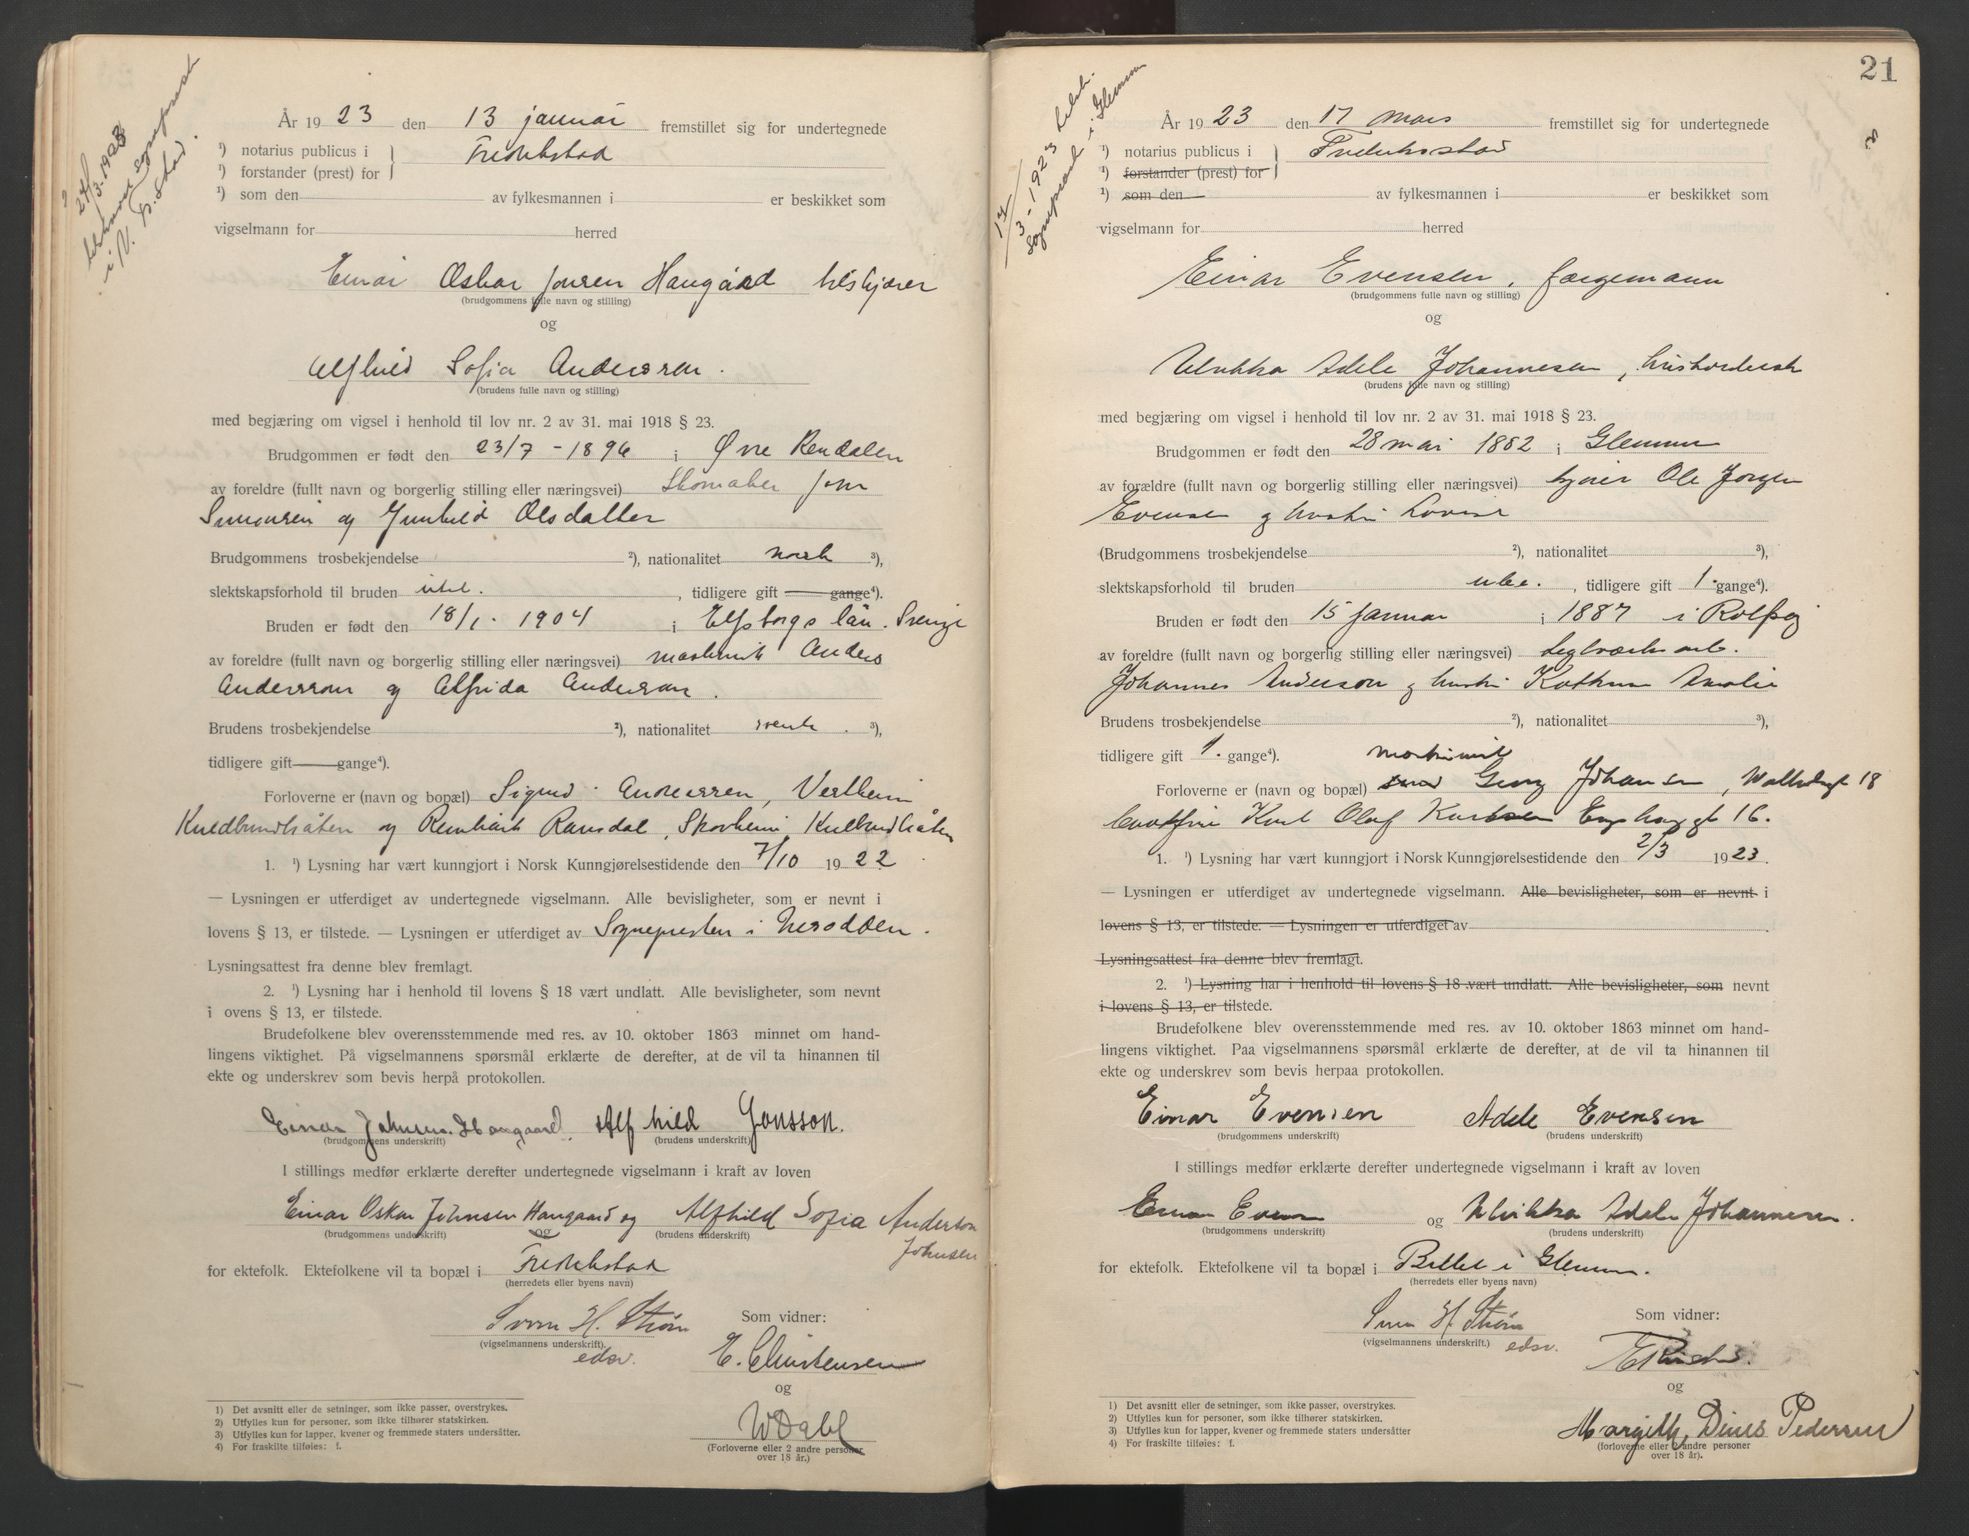 27/3-1923
sogneprest
År 1923 den 13 januar fremstillet sig for undertegnede
¹) notarius publicus i } Fredrikstad
¹) forstander (prest) for
¹) som den av fylkesmannen i er beskikket som
vigselmann for herred
Einar Oskar Jonsen Haugård
(brudgommens fulle navn og stilling)
og
Alfhild Sofia Andersson.
(brudens fulle navn og stilling)
med begjæring om vigsel i henhold til lov nr. 2 av 31. mai 1918 § 23.
Brudgommen er født den 23/7 - 1896 i Øvre Rendalen
av foreldre (fullt navn og borgerlig stilling eller næringsvei) Skomaker Jon
Simonsen og Gunhild Olsdatter
Brudgommens trosbekjendelse ²), nationalitet norsk ³),
slektskapsforhold til bruden , tidligere gift gange⁴).
Bruden er født den 18/1. 1904 i Elfsborgs län. Sverige
av foreldre (fullt navn og borgerlig stilling eller næringsvei) maskinist Anders
Andersson og Alfrida Andersson.
Brudens trosbekjendelse ²), nationalitet svensk. ³),
tidligere gift gange⁴).
Forloverne er (navn og bopæl) Sigurd Andersen, Vestheim
og Reinhardt Ramsdal, Skovheim,
1. ¹) Lysning har vært kunngjort i Norsk Kunngjørelsestidende den 7/10 1922
— Lysningen er utferdiget av undertegnede vigselmann. Alle bevisligheter, som er nevnt i
lovens § 13, er tilstede. — Lysningen er utferdiget av Sognepresten i Nesodden.
Lysningsattest fra denne blev fremlagt.
2. ¹) Lysning har i henhold til lovens § 18 vært undlatt. Alle bevisligheter, som nevnt
i ovens § 13, er tilstede.
Brudefolkene blev overensstemmende med res. av 10. oktober 1863 minnet om hand-
lingens viktighet. På vigselmannens spørsmål erklærte de derefter, at de vil ta hinannen til
ekte og underskrev som bevis herpå protokollen.
Einar Johnsen Haugaard. Alfhild Jonsson.
(brudgommens underskrift) (brudens underskrift)
I stillings medfør erklærte derefter undertegnede vigselmann i kraft av loven
Einar Oskar Johnsen Haugaard og Alfhild Sofia Anderson
Johnsen
(brudgommens underskrift) og (brudens underskrift)
for ektefolk. Ektefolkene vil ta bopæl i Fredrikstad
(herredets eller byens navn)
Svem H. Strøm
(vigselmannens underskrift)
edsv.
Som vidner:
E. Christensen
og
W Dahl
(Forloverne eller 2 andre personer
over 18 år.)
1) Det avsnitt eller de setninger, som ikke passer, overstrykes.
2) Utfylles kun for personer, som ikke tilhører statskirken.
3) Utfylles kun for lapper, kvener og fremmede staters undersåtter.
4) For fraskilte tilføies: f.
21
17/3-1923
Sogneprest i Glemmen
År 1923 den 17 mars fremstillet sig for undertegnede
¹) notarius publicus i } Fredriksstad
¹) forstander (prest) for
¹) som den av fylkesmannen i er beskikket som
vigselmann for herred
Einar Evensen, færgemann
(brudgommens fulle navn og stilling)
og
Ulrikka Adele Johannesen,
(brudens fulle navn og stilling)
med begjæring om vigsel i henhold til lov nr. 2 av 31. mai 1918 § 23.
Brudgommen er født den 28 mai 1882 i Glemmen
av forældre (fullt navn og borgerlig stilling eller næringsvei) Ole Jørgen
Evensen og hustru Lovise
(Brudgommens trosbekjendelse ²), nationalitet ³),
slektskapsforhold til bruden , tidligere gift 1. gange⁴).
Bruden er født den 15 januar i 1887 i Rolfsøy
av foreldre (fullt navn og borgerlig stilling eller næringsvei) teglværksarb.
Johannes Anderson og hustru Kathrine Amalie
Brudens trosbekjendelse ²), nationalitet ³),
tidligere gift 1. gange⁴). maskinist
Forloverne er (navn og bopæl) Georg Johansen, 18
Knut Olaf Karlsen 16.
1. ¹) Lysning har vært kunngjort i Norsk Kunngjørelsestidende den 2/3 1923.
— Lysningen er utferdiget av undertegnede vigselmann. Alle bevisligheter, som er nevnt i
lovens § 13, er tilstede. — Lysningen er utferdiget av
Lysningsattest fra denne blev fremlagt.
2. ¹) Lysning har i henhold til lovens § 18 vært undlatt. Alle bevisligheter, som nevnt
i lovens § 13, er tilstede.
Brudefolkene blev overensstemmende med res. av 10. oktober 1863 minnet om hand-
lingens viktighet. Paa vigselmannens spørsmål erklærte de derefter, at de vil ta hinannen til
ekte og underskrev som bevis herpaa protokollen.
Einar Evensen Adele Evensen
(brudgommens underskrift) (brudens underskrift)
I stillings medfør erklærte derefter undertegnede vigselmann i kraft av loven
Einar Evensen og Ulrikka Adele Johannesen.
(brudgommens underskrift) (brudens underskrift)
for ektefolk. Ektefolkene vil ta bopæl i i Glemmen.
(herredets eller byens navn)
H. Strøm
(vigselmannens underskrift.) edsv.
Som vidner:
og
Margith Dines Pedersen
(forloverne eller 2 andre personer
over 18 år).
1) Det avsnitt eller de setninger, som ikke passer, overstrykes.
2) Utfylles kun for personer, som ikke tilhører statskirken.
3) Utfylles kun for lapper, kvener og fremmede staters undersåtter
4) For fraskilte tilføies: f.